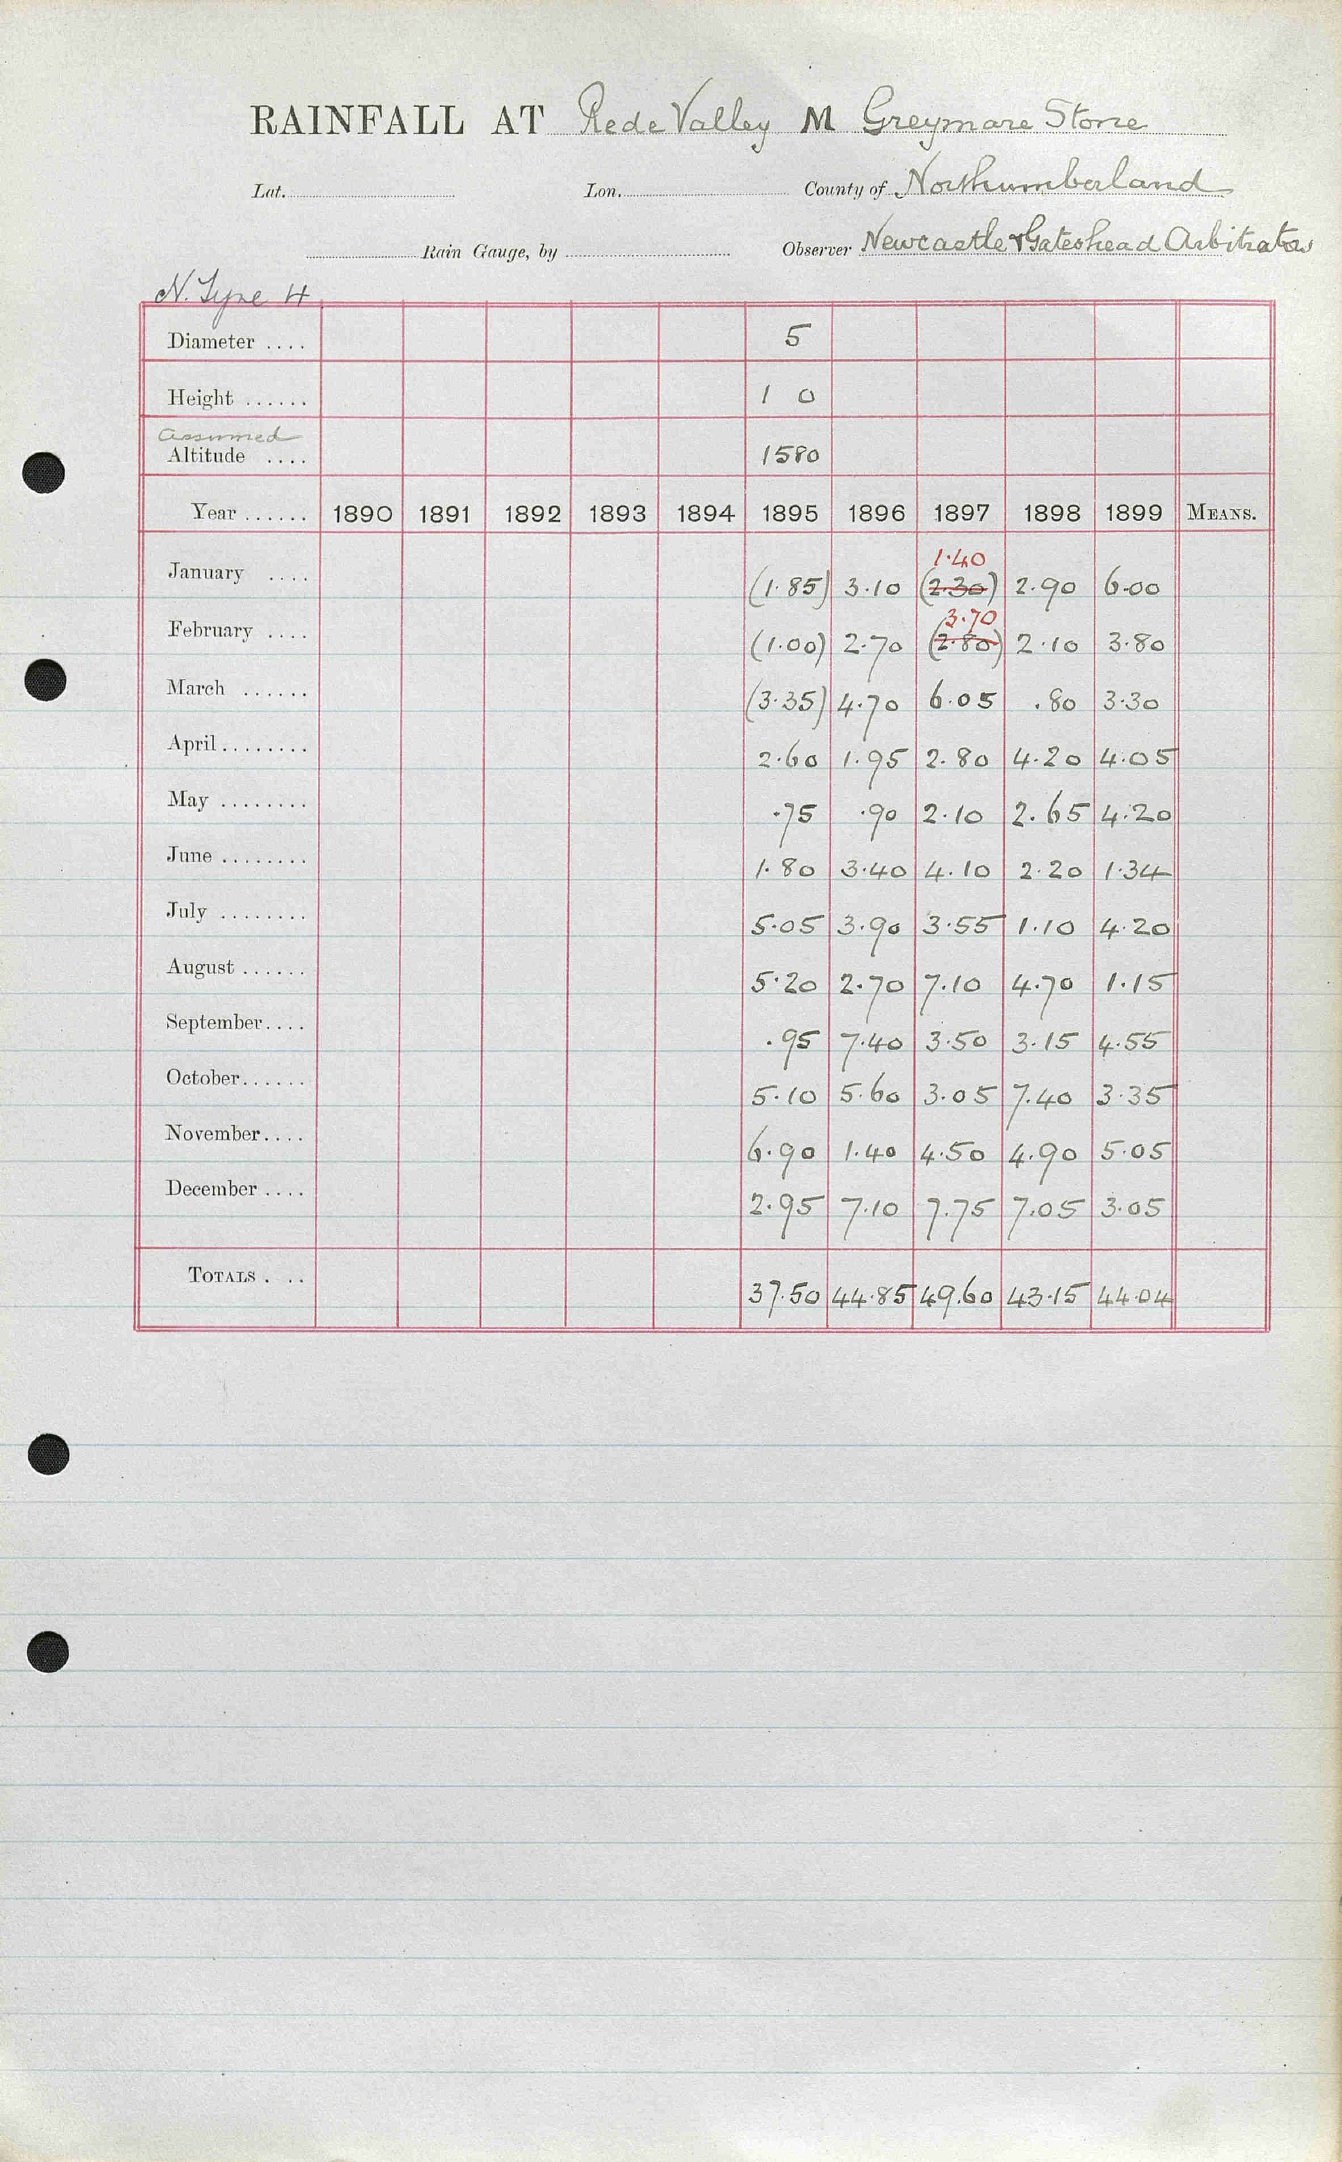 RAINFALL AT Rede Valley M Greymare Stone
Lat. Lon. County of Northumberland
Rain Gauge, by Observer Newcastle & Gateshead Arbitration
N. Tyne 4
Diameter .... 5
Height ...... 1 0
assumed
Altitude .... 1580
Year ...... 1890 1891 1892 1893 1894 1895 1896 1897 1898 1899 MEANS.
1.40
January .... (1.85) 3.10 (2.30) 2.90 6.00
3.70
February .... (1.00) 2.70 (2.80) 2.10 3.80
March ...... (3.35) 4.70 6.05 .80 3.30
April........ 2.60 1.95 2.80 4.20 4.05
May ........ .75 .90 2.10 2.65 4.20
June ........ 1.80 3.40 4.10 2.20 1.34
July ........ 5.05 3.90 3.55 1.10 4.20
August ...... 5.20 2.70 7.10 4.70 1.15
September.... .95 7.40 3.50 3.15 4.55
October...... 5.10 5.60 3.05 7.40 3.35
November.... 6.90 1.40 4.50 4.90 5.05
December .... 2.95 7.10 7.75 7.05 3.05
TOTALS . .. 37.50 44.85 49.60 43.15 44.04